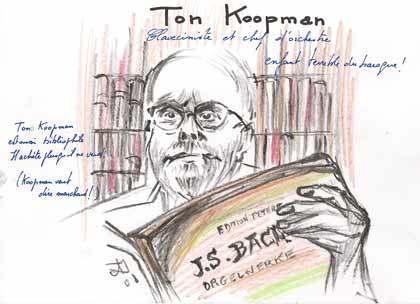 Ton Koopman
Claveciniste et chef d'orchestre
enfant terrible du baroque!
Ton Koopman
est aussi bibliophile
Il achète plus qu'il ne vend.
(Koopman veut
dire marchand!
EDITION PETERS
J.S. BACH
ORGELWERKE